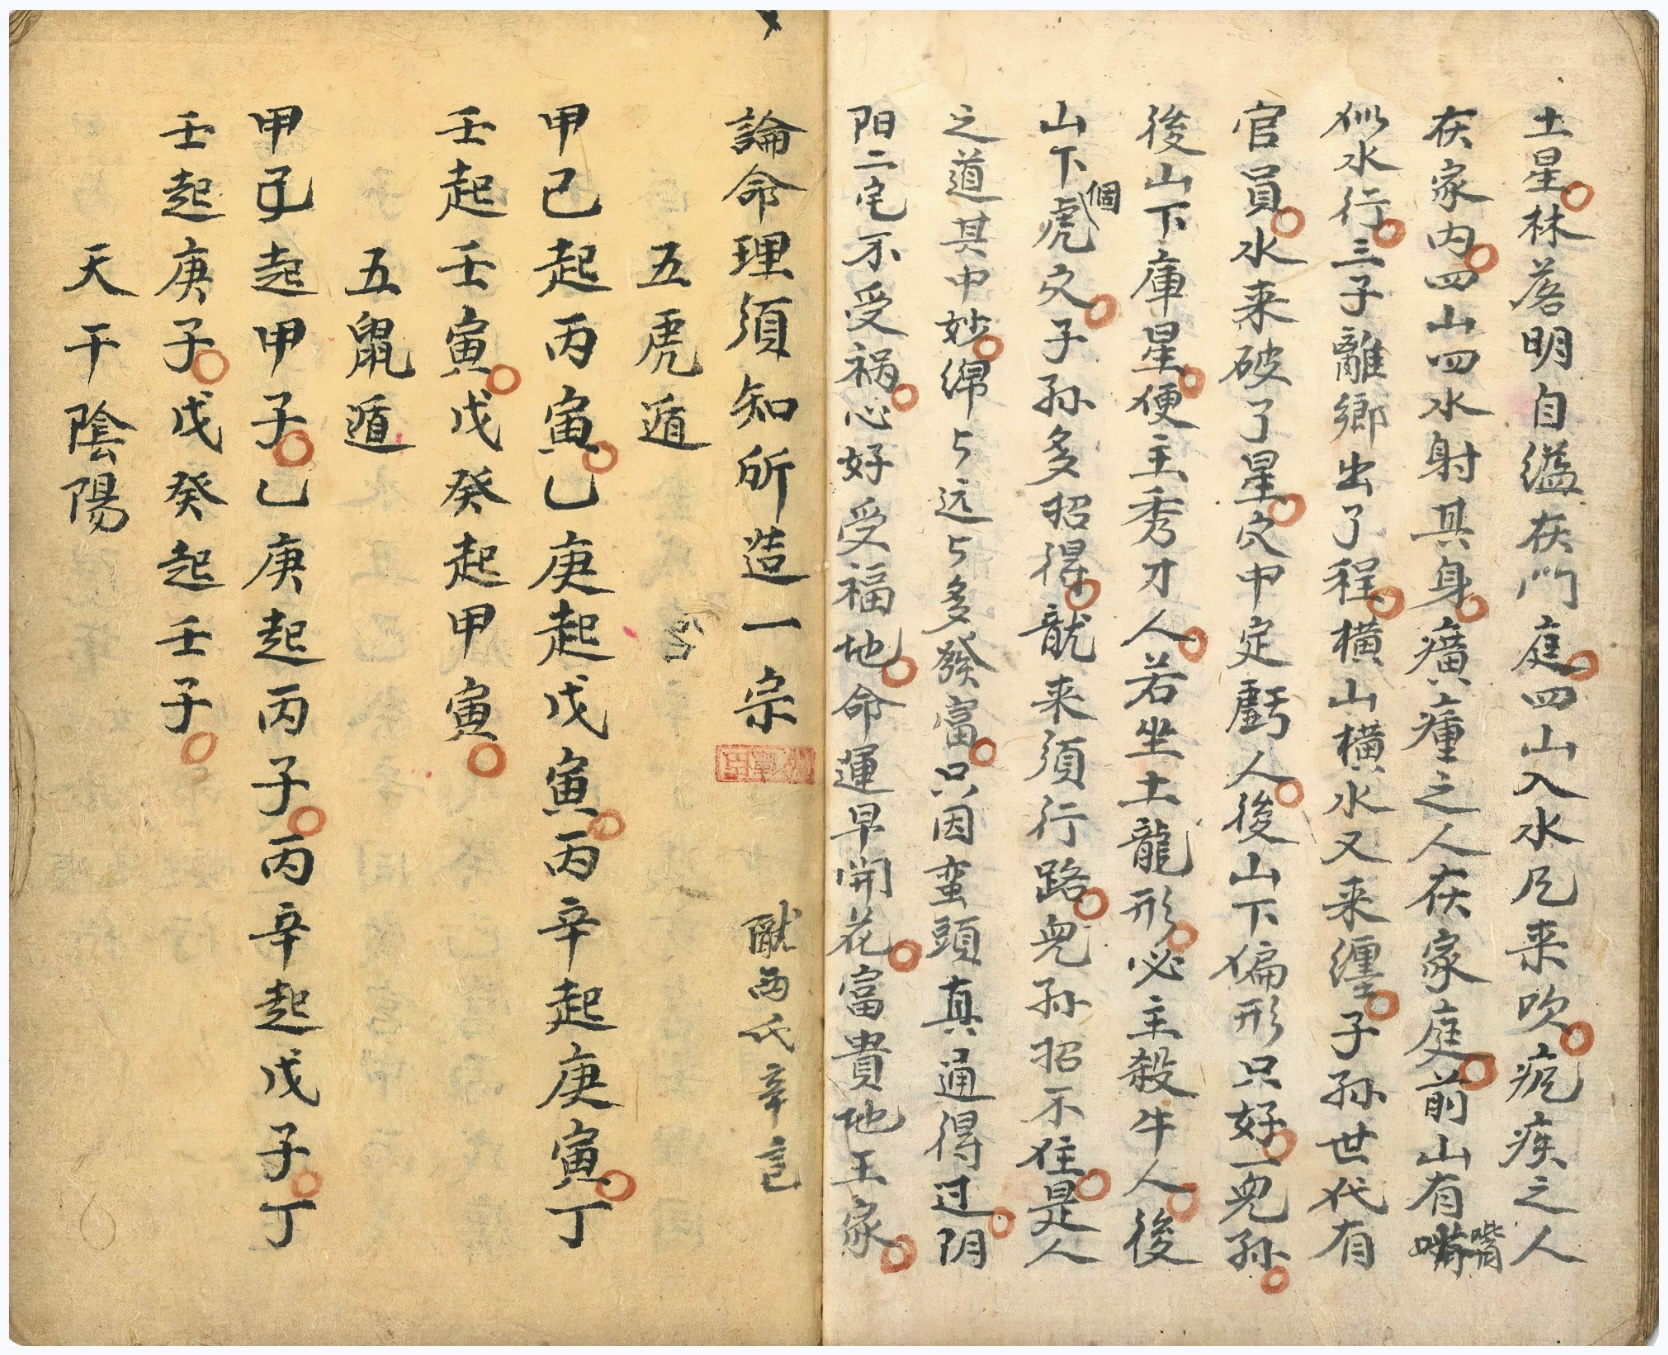 土星林落明自縊在門庭四山入水凡来吹疯疾之人
在家内四山四水射其身癀瘇之人在家庭前山有嘴
似水行三子離鄉出了程横山横水又来纏子孙世代有
官員水来破了星文甲定虧人後山下偏形只好一兒孙
後山下庫星便主秀才人若坐土龍形必主殺牛人後
山下個虎文子孙多招得龍来須行路兒孙招不住是人
之道其中妙綿与远与多發富只因蛮頭真通得过阴
阳二宅不受祸心好受福地命運早開花富貴地王家
論命理須知所造一宗
西氏辛
五虎遁
甲己起丙寅乙庚起戊寅丙辛起庚寅丁
壬起壬寅戊癸起甲寅
五鼠遁
甲己起甲子乙庚起丙子丙辛起戊子丁
壬起庚子戊癸起壬子
天干陰陽